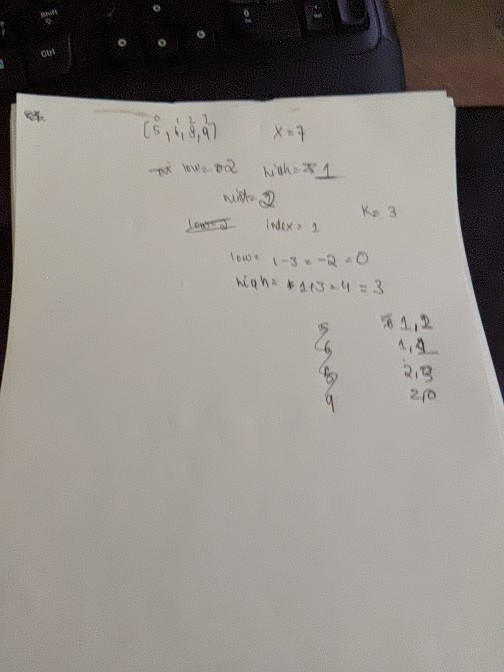 Shift
Ctrl
0 1 2 3
[5, 6, 8, 9] X=7
low= 2 high= 1
mid= 2
K= 3
index= 1
low= 1-3 = -2 = 0
high= 1+3 = 4 = 3
5 1,2
6 1,1
8 2,3
9 2,0